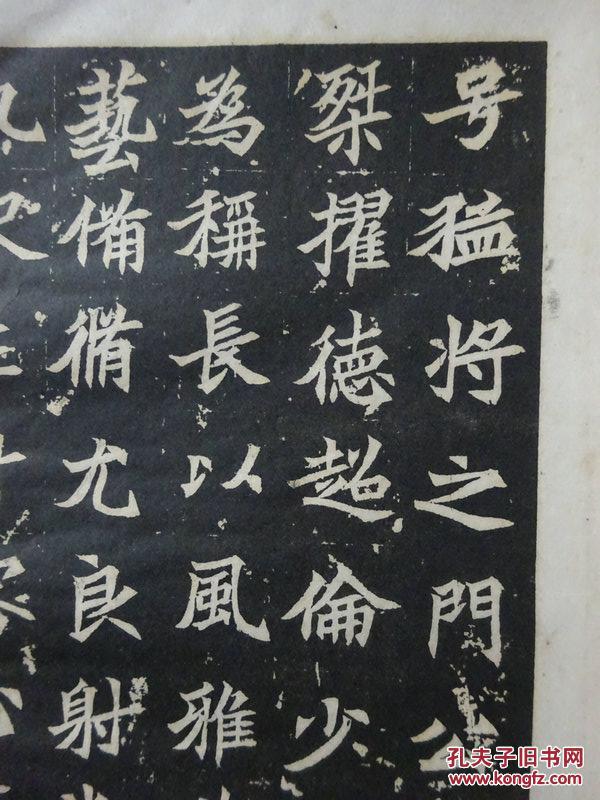 号猛将之門公
桀擢德超倫少
為稱長以風雅
藝備脩尤良射
孔夫子旧书网
www.kongfz.com